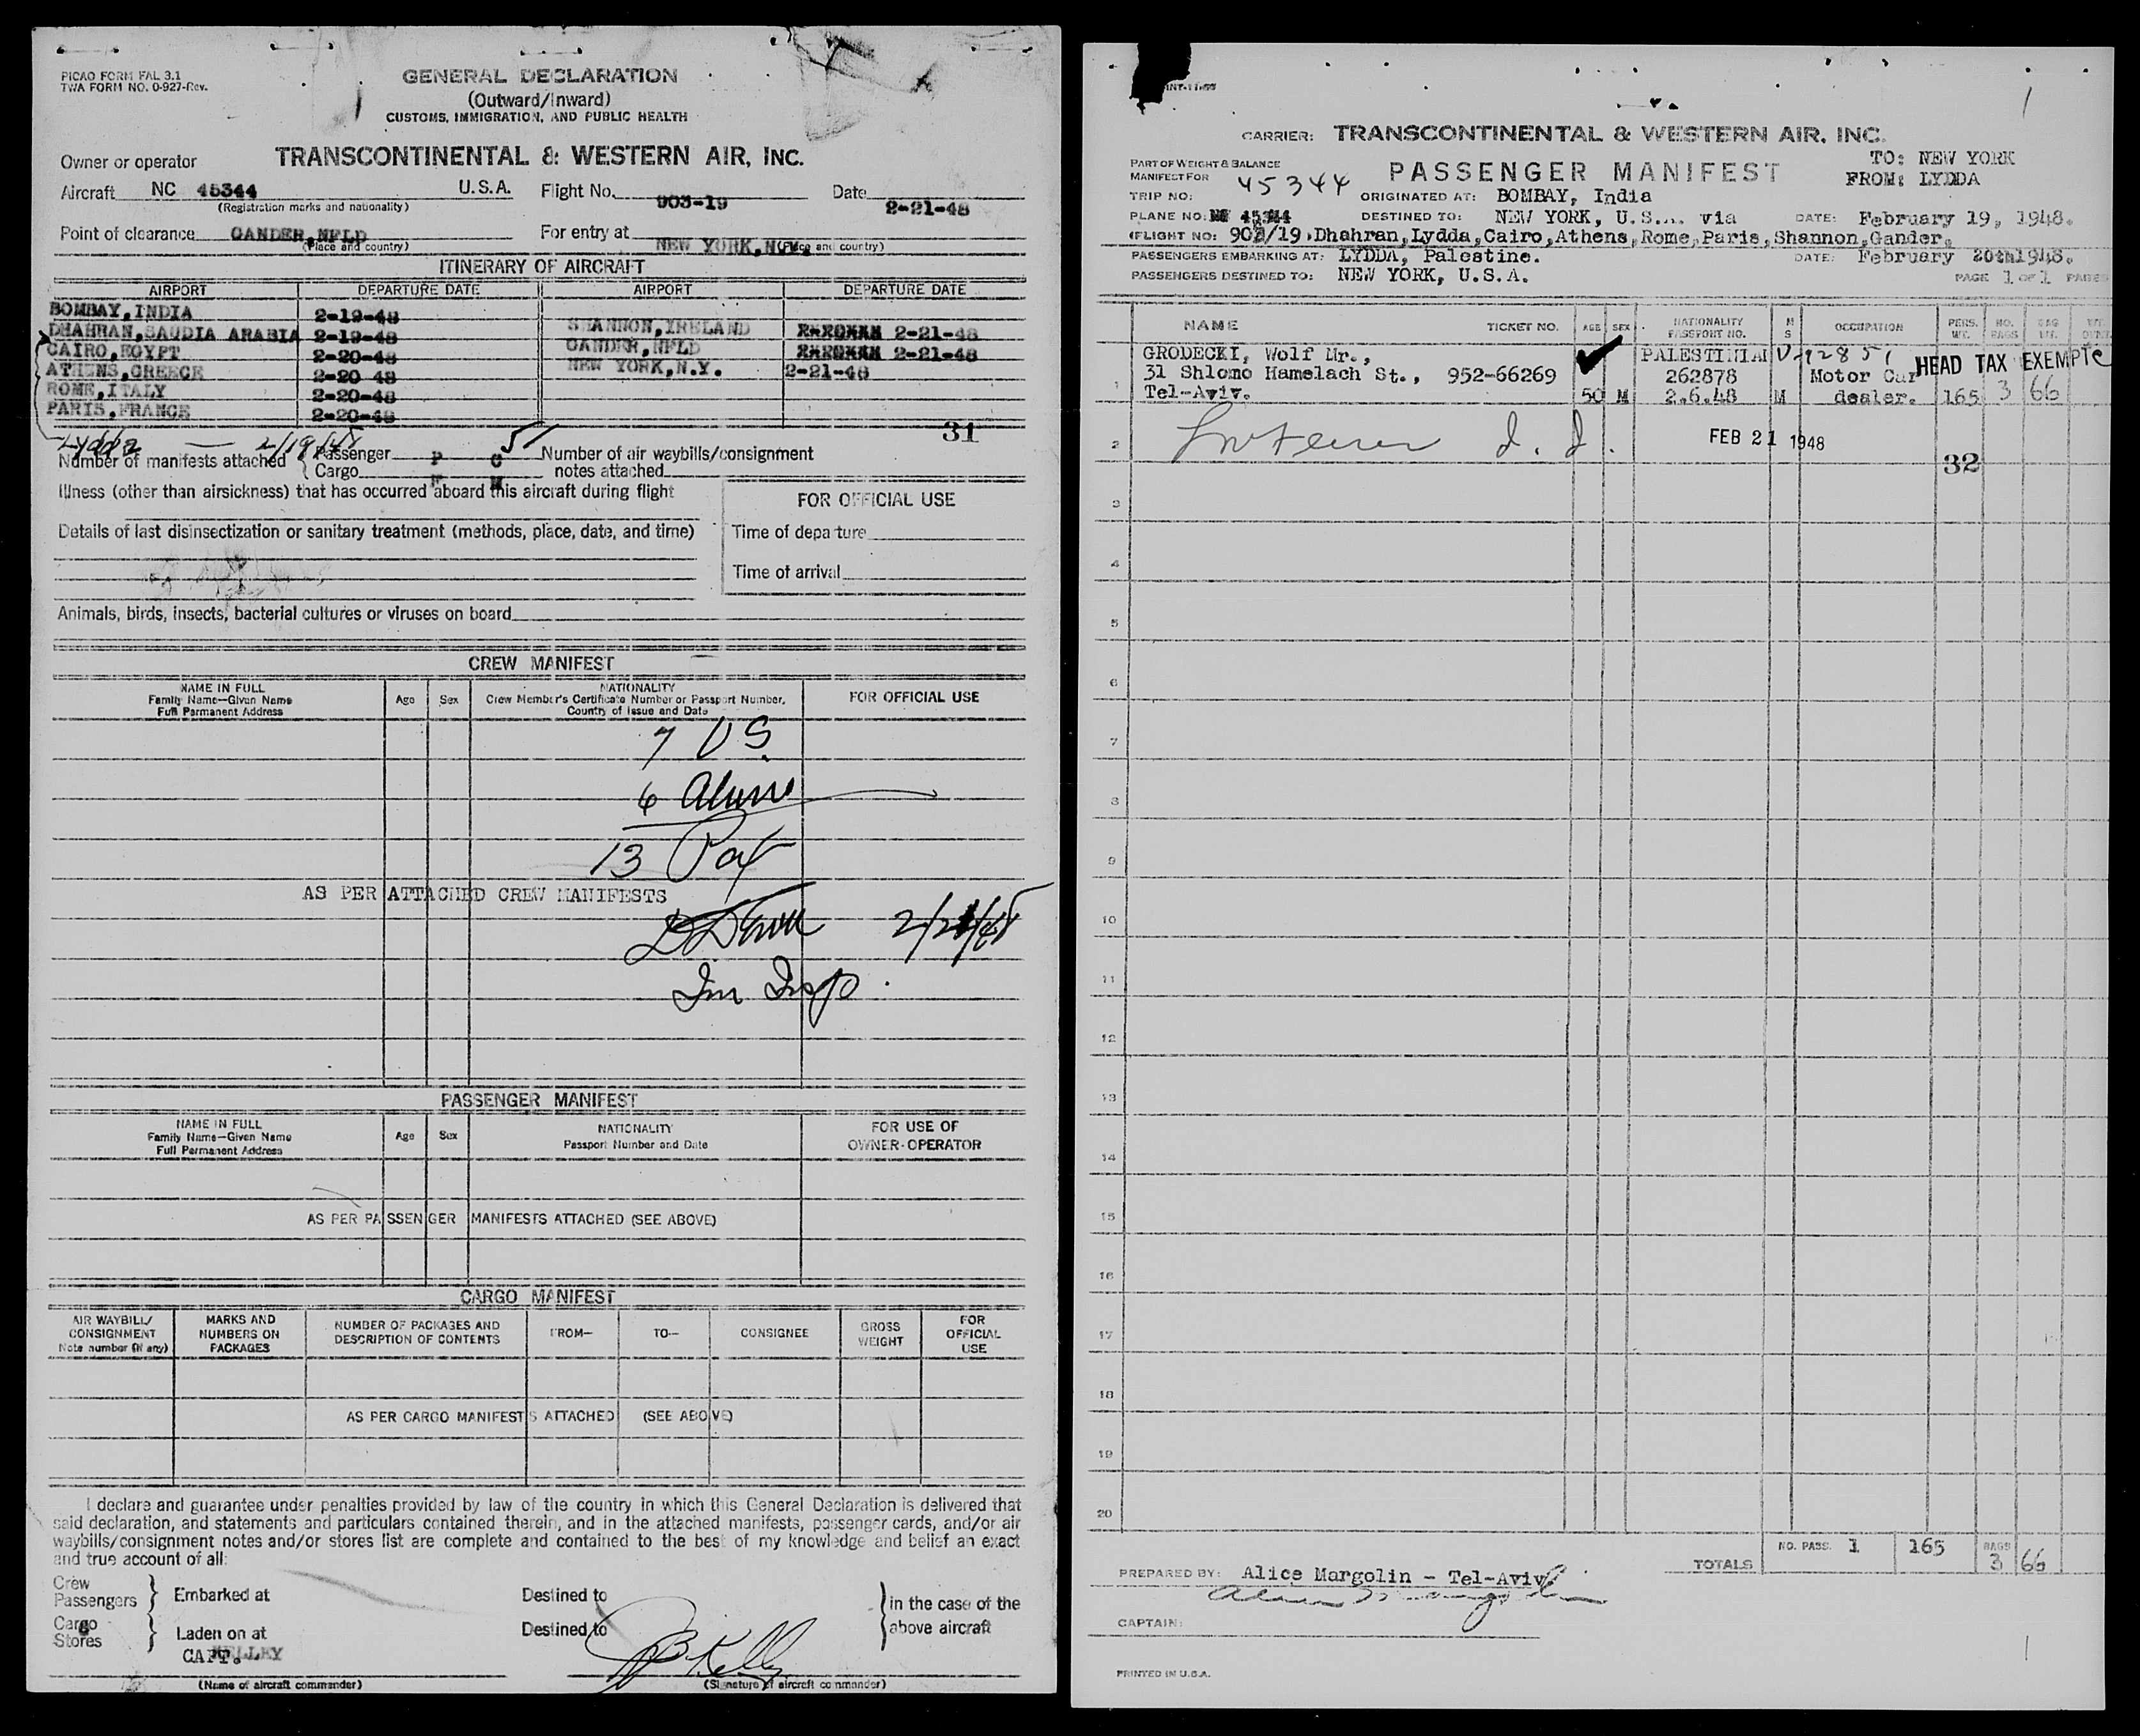 PICAO FORM FAL 3.1
TWA FORM NO. 0-927-Rev.
GENERAL DECLARATION
(Outward/Inward)
CUSTOMS, IMMIGRATION, AND PUBLIC HEALTH
Owner or operator TRANSCONTINENTAL & WESTERN AIR, INC.
Aircraft NC 45344 U.S.A. Flight No. 903-19 Date 2-21-48
(Registration marks and nationality)
Point of clearance GANDER,NFLD For entry at NEW YORK,N.Y.
(Place and country) (Place and country)
ITINERARY OF AIRCRAFT
AIRPORT DEPARTURE DATE AIRPORT DEPARTURE DATE
BOMBAY,INDIA 2-19-48
DHAHRAN,SAUDIA ARABIA 2-19-48 SHANNON,IRELAND 2-21-48
CAIRO,EGYPT 2-20-48 GANDER,NFLD 2-21-48
ATHENS,GREECE 2-20-48 NEW YORK,N.Y. 2-21-48
ROME,ITALY 2-20-48
PARIS,FRANCE 2-20-48
31
Lydda — 2/19/48
Number of manifests attached { Passenger P C 51 Number of air waybills/consignment
Cargo notes attached
Illness (other than airsickness) that has occurred aboard this aircraft during flight
FOR OFFICIAL USE
Details of last disinsectization or sanitary treatment (methods, place, date, and time)
Time of departure
Time of arrival
Animals, birds, insects, bacterial cultures or viruses on board
CREW MANIFEST
NAME IN FULL
Family Name—Given Name
Full Permanent Address
Age Sex
NATIONALITY
Crew Member's Certificate Number or Passport Number,
Country of Issue and Date
FOR OFFICIAL USE
7 US.
6 Aliens
13 Pax
AS PER ATTACHED CREW MANIFESTS
2/21/48
Im Insp.
PASSENGER MANIFEST
NAME IN FULL
Family Name—Given Name
Full Permanent Address
Age Sex
NATIONALITY
Passport Number and Date
FOR USE OF
OWNER-OPERATOR
AS PER PASSENGER MANIFESTS ATTACHED (SEE ABOVE)
CARGO MANIFEST
AIR WAYBILL/
CONSIGNMENT
Note number (if any)
MARKS AND
NUMBERS ON
PACKAGES
NUMBER OF PACKAGES AND
DESCRIPTION OF CONTENTS
FROM—
TO—
CONSIGNEE
GROSS
WEIGHT
FOR
OFFICIAL
USE
AS PER CARGO MANIFESTS ATTACHED (SEE ABOVE)
I declare and guarantee under penalties provided by law of the country in which this General Declaration is delivered that
said declaration, and statements and particulars contained therein, and in the attached manifests, passenger cards, and/or air
waybills/consignment notes and/or stores list are complete and contained to the best of my knowledge and belief an exact
and true account of all:
Crew
Passengers } Embarked at Destined to
Cargo
Stores } Laden on at Destined to
} in the case of the
above aircraft
CAPT. KELLEY
JB Kelly
(Name of aircraft commander) (Signature of aircraft commander)
CARRIER: TRANSCONTINENTAL & WESTERN AIR, INC.
PART OF WEIGHT & BALANCE
MANIFEST FOR 45344
PASSENGER MANIFEST
TO: NEW YORK
FROM: LYDDA
TRIP NO: ORIGINATED AT: BOMBAY, India
PLANE NO: 45344 DESTINED TO: NEW YORK, U.S.A. via DATE: February 19, 1948.
(FLIGHT NO: 903/19.Dhahran,Lydda,Cairo,Athens,Rome,Paris,Shannon,Gander.
PASSENGERS EMBARKING AT: LYDDA, Palestine. DATE: February 20th1948.
PASSENGERS DESTINED TO: NEW YORK, U.S.A. PAGE 1 OF 1 PAGES
NAME TICKET NO. AGE SEX NATIONALITY PASSPORT NO. M S OCCUPATION PERS. WT. NO. BAGS BAG WT.
GRODECKI, Wolf Mr., PALESTINIAN V-92851 HEAD TAX EXEMPT
1 31 Shlomo Hamelach St., 952-66269 262878 Motor Car
Tel-Aviv. 50 M 2.6.48 M dealer. 165 3 66
2 FEB 21 1948
32
3
4
5
6
7
8
9
10
11
12
13
14
15
16
17
18
19
20
TOTALS NO. PASS. 1 165 BAGS 3 66
PREPARED BY: Alice Margolin - Tel-Aviv
Alice Margolin
CAPTAIN:
PRINTED IN U.S.A.